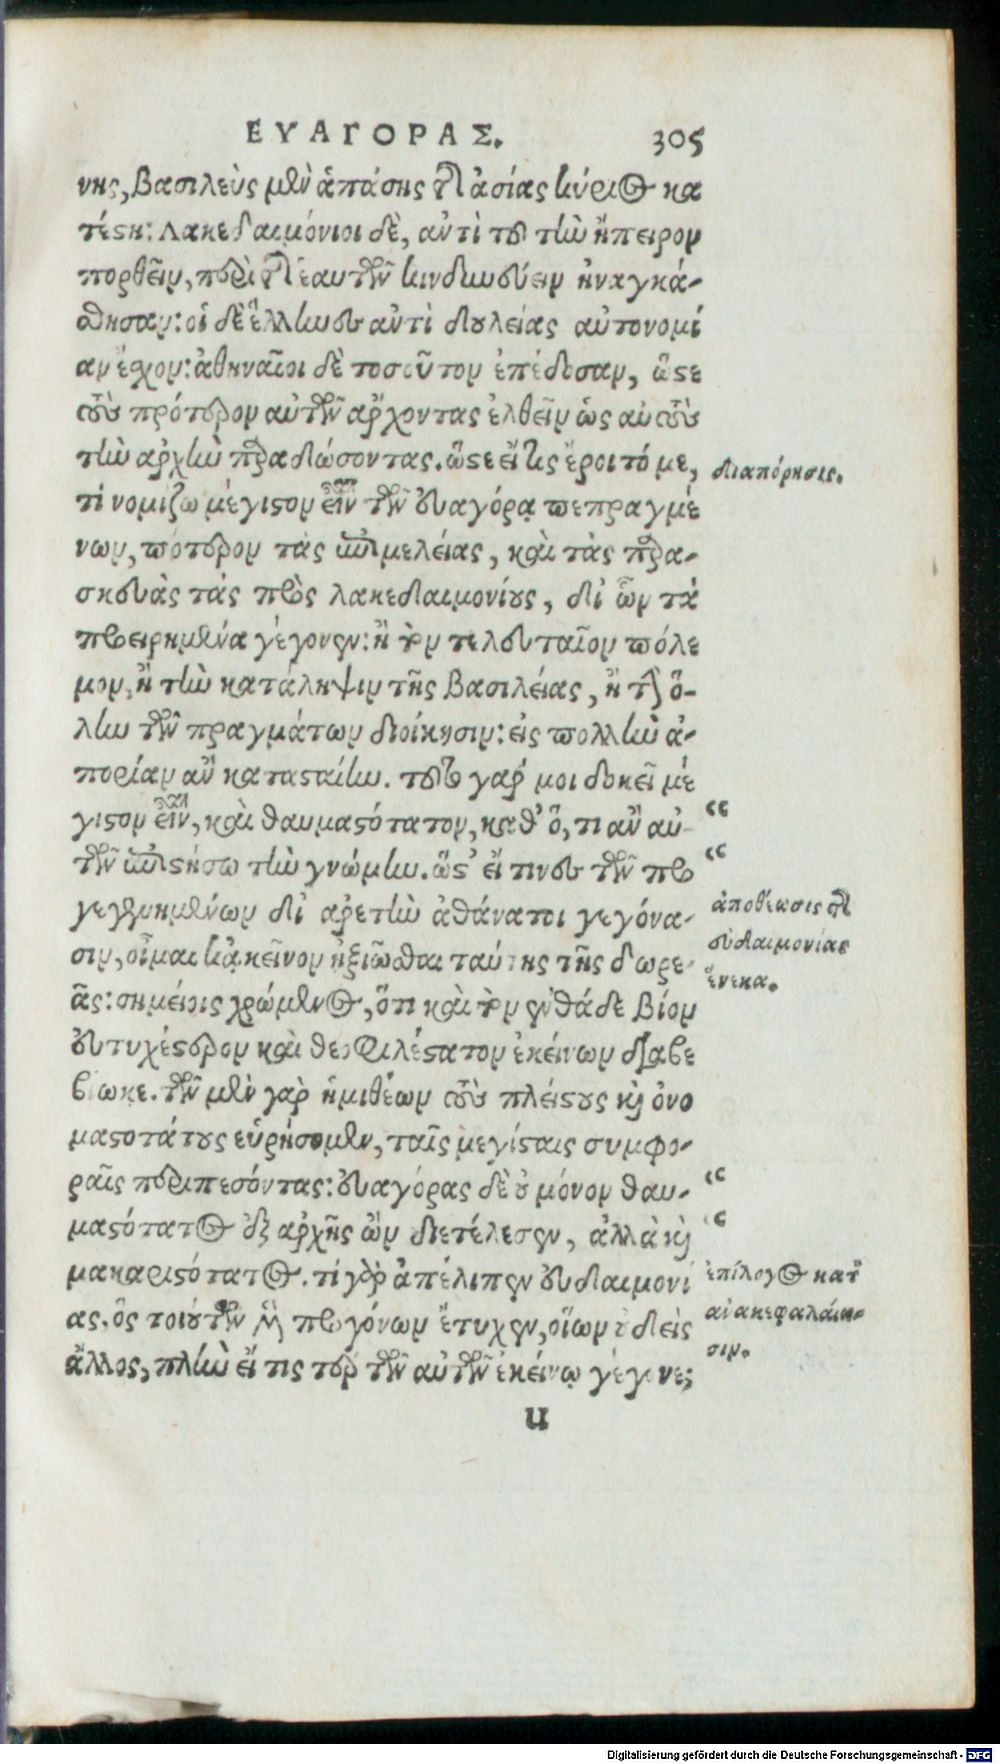 ΕΥΑΓΟΡΑΣ. 305
νης, βασιλεὺς μὲν ἁπάσης τῆς ἀσίας κύριος κα
τέστη: Λακεδαιμόνιοι δὲ, ἀντὶ τοῦ τὴν ἤπειρον
πορθεῖν, περὶ τῆς ἑαυτῶν κινδυνεύειν ἠναγκά-
σθησαν: οἱ δὲ ἕλληνες ἀντὶ δουλείας αὐτονομί
αν ἔσχον: ἀθηναῖοι δὲ τοσοῦτον ἐπέδοσαν, ὥστε
τοὺς πρότερον αὐτῶν ἄρχοντας ἐλθεῖν ὡς αὐτοὺς
τὴν ἀρχὴν παραδώσοντας. ὥστε εἴ τις ἔροιτό με,
διαπόρησις.
τί νομίζω μέγιστον εἶναι τῶν εὐαγόρᾳ πεπραγμέ
νων, πότερον τὰς ἐπιμελείας, καὶ τὰς παρα-
σκευὰς τάς πρὸς λακεδαιμονίους, δι' ὧν τὰ
προειρημένα γέγονεν: ἢ τὸν τελευταῖον πόλε
μον, ἢ τὴν κατάληψιν τῆς βασιλείας, ἢ τὴν ὅ-
λην τῶν πραγμάτων διοίκησιν: εἰς πολλὴν ἀ-
πορίαν ἂν κατασταίην. τοῦτο γάρ μοι δοκεῖ μέ
γιστον εἶναι, καὶ θαυμαστότατον, καθ' ὅ, τι ἂν αὐ
“
τῶν ἐπιστήσω τὴν γνώμην. ὥστ' εἴ τινες τῶν προ
“
γεγενημένων δι' ἀρετὴν ἀθάνατοι γεγόνα-
ἀποθέωσις τῆς
σιν, οἶμαι κἀκεῖνον ἠξιῶσθαι ταύτης τῆς δωρε
εὐδαιμονίας
ᾶς: σημείοις χρώμενος, ὅτι καὶ τὸν ἐνθάδε βίον
ἕνεκα.
εὐτυχέστερον καὶ θεοφιλέστατον ἐκείνων διαβε
βίωκε. τῶν μὲν γὰρ ἡμιθέων τοὺς πλείστους καὶ ὀνο
μαστοτάτους εὑρήσομεν, ταῖς μεγίσταις συμφο-
ραῖς περιπεσόντας: εὐαγόρας δὲ οὐ μόνον θαυ-
“
μαστότατος ἐξ ἀρχῆς ὢν διετέλεσεν, ἀλλὰ καὶ
“
μακαριστότατος. τί γὰρ ἀπέλιπεν εὐδαιμονί
ἐπίλογος κατ'
ας. ὃς τοιούτων μὲν προγόνων ἔτυχεν, οἵων οὐδεὶς
ἀνακεφαλαίω-
ἄλλος, πλὴν εἴ τις τῶν αὐτῶν ἐκείνῳ γέγονε;
σιν.
u
Digitalisierung gefördert durch die Deutsche Forschungsgemeinschaft - DFG